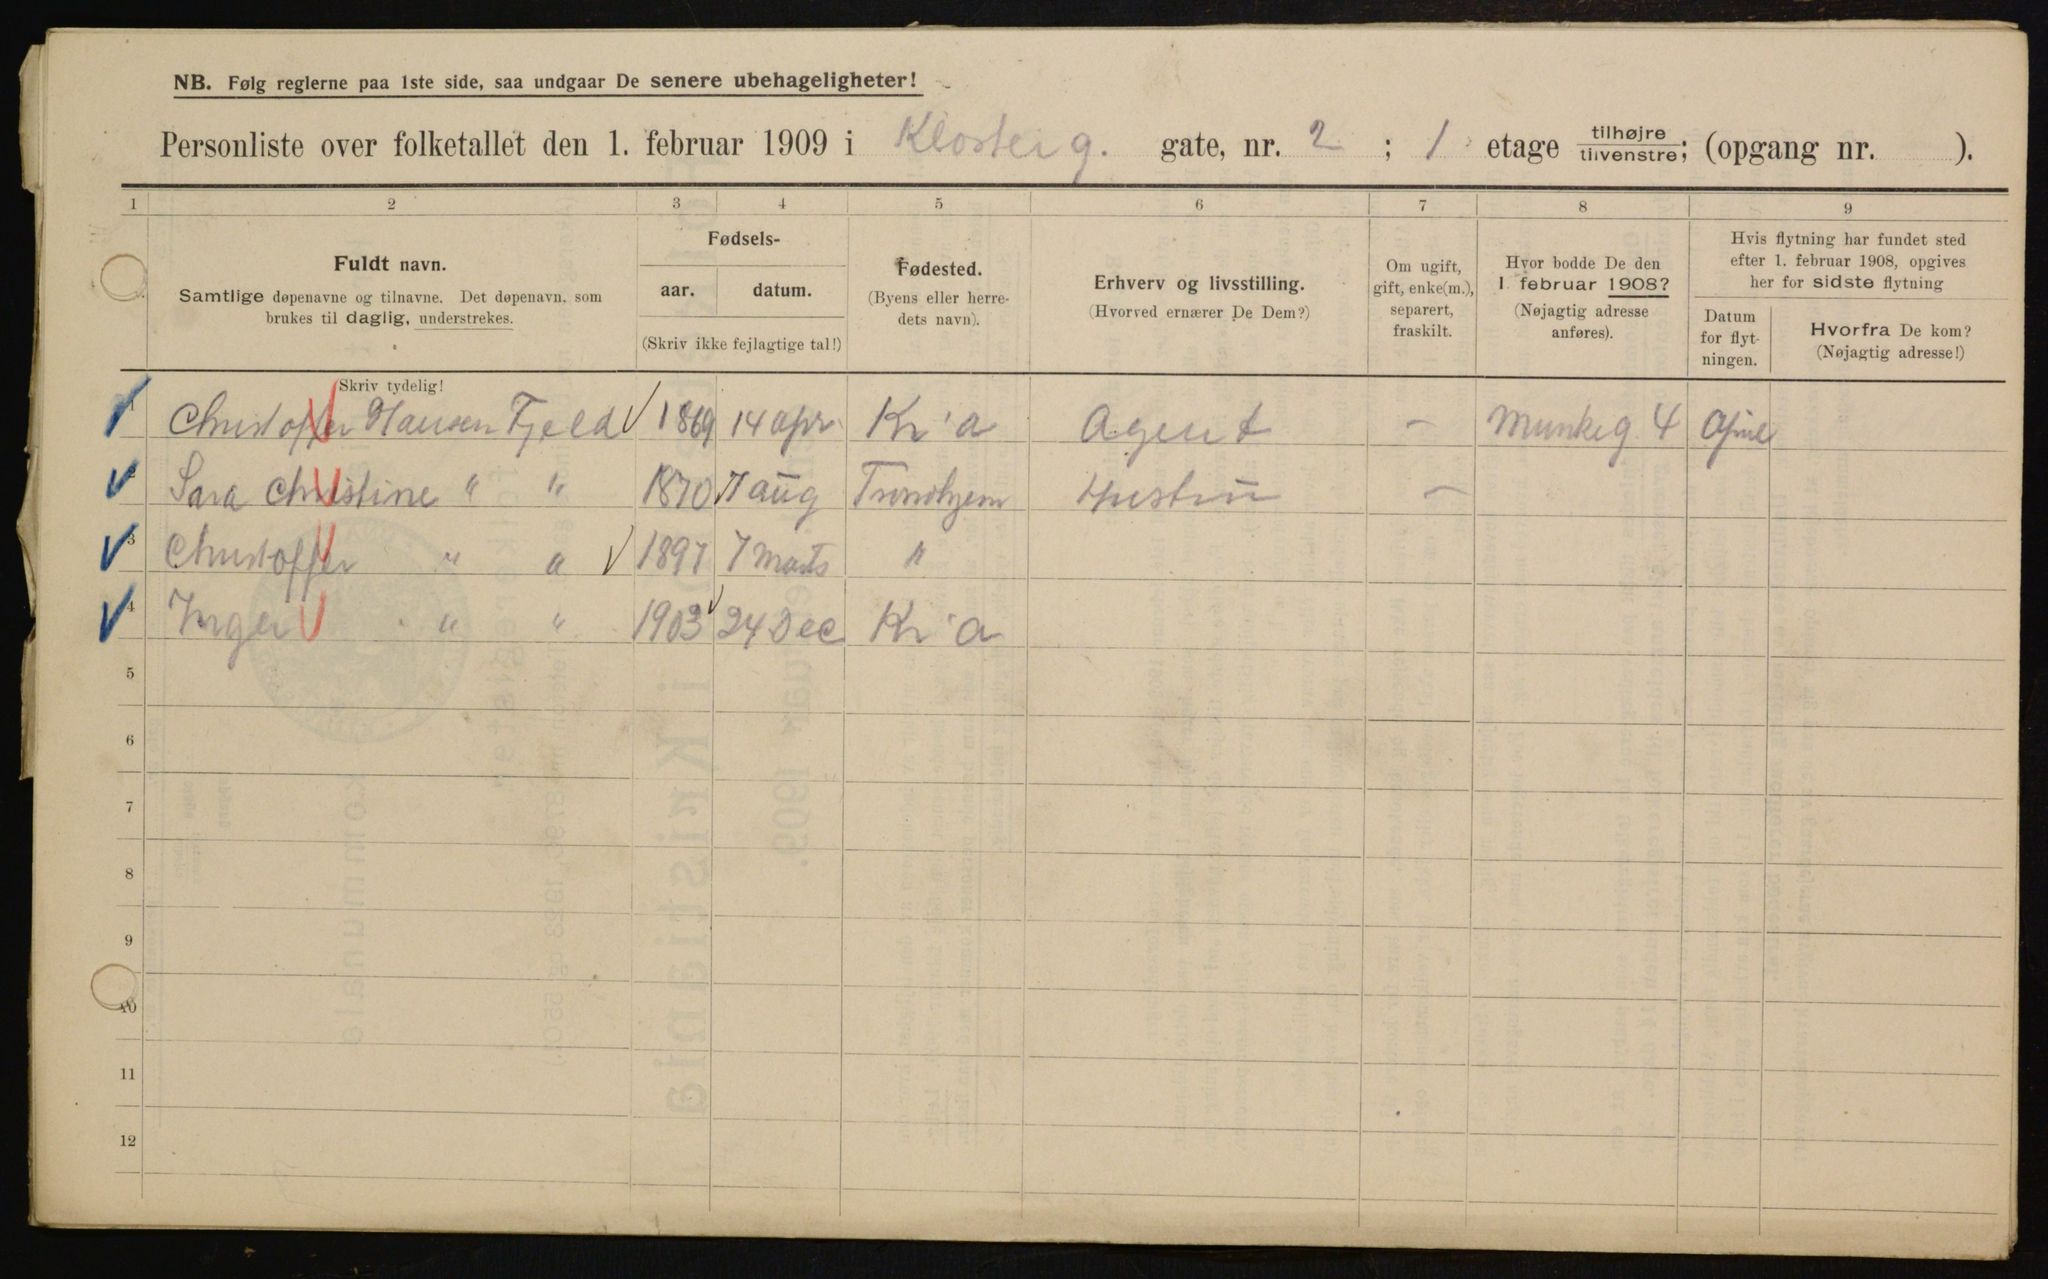 NB. Følg reglerne paa 1ste side, saa undgaar De senere ubehageligheter!
Personliste over folketallet den 1. februar 1909 i Klosterg. gate, nr. 2 ; 1 etage tilhøjre/tilvenstre; (opgang nr. ).
1 2 3 4 5 6 7 8 9
Fuldt navn.
Samtlige døpenavne og tilnavne. Det døpenavn, som
brukes til daglig, understrekes.
Skriv tydelig!
Fødsels-
aar. datum.
(Skriv ikke fejlagtige tal!)
Fødested.
(Byens eller herre-
dets navn).
Erhverv og livsstilling.
(Hvorved ernærer De Dem?)
Om ugift,
gift, enke(m.),
separert,
fraskilt.
Hvor bodde De den
1. februar 1908?
(Nøjagtig adresse
anføres).
Hvis flytning har fundet sted
efter 1. februar 1908, opgives
her for sidste flytning
Datum
for flyt-
ningen.
Hvorfra De kom?
(Nøjagtig adresse!)
1 Christoffer Hansen Fjeld 1869 14 apr Kr'a Agent – Munkeg 4
2 Sara Christine " " 1870 7 aug Trondhjem Hustru –
3 Christoffer " " 1897 7 Marts "
4 Inger " " 1903 24 Dec Kr'a
5
6
7
8
9
10
11
12